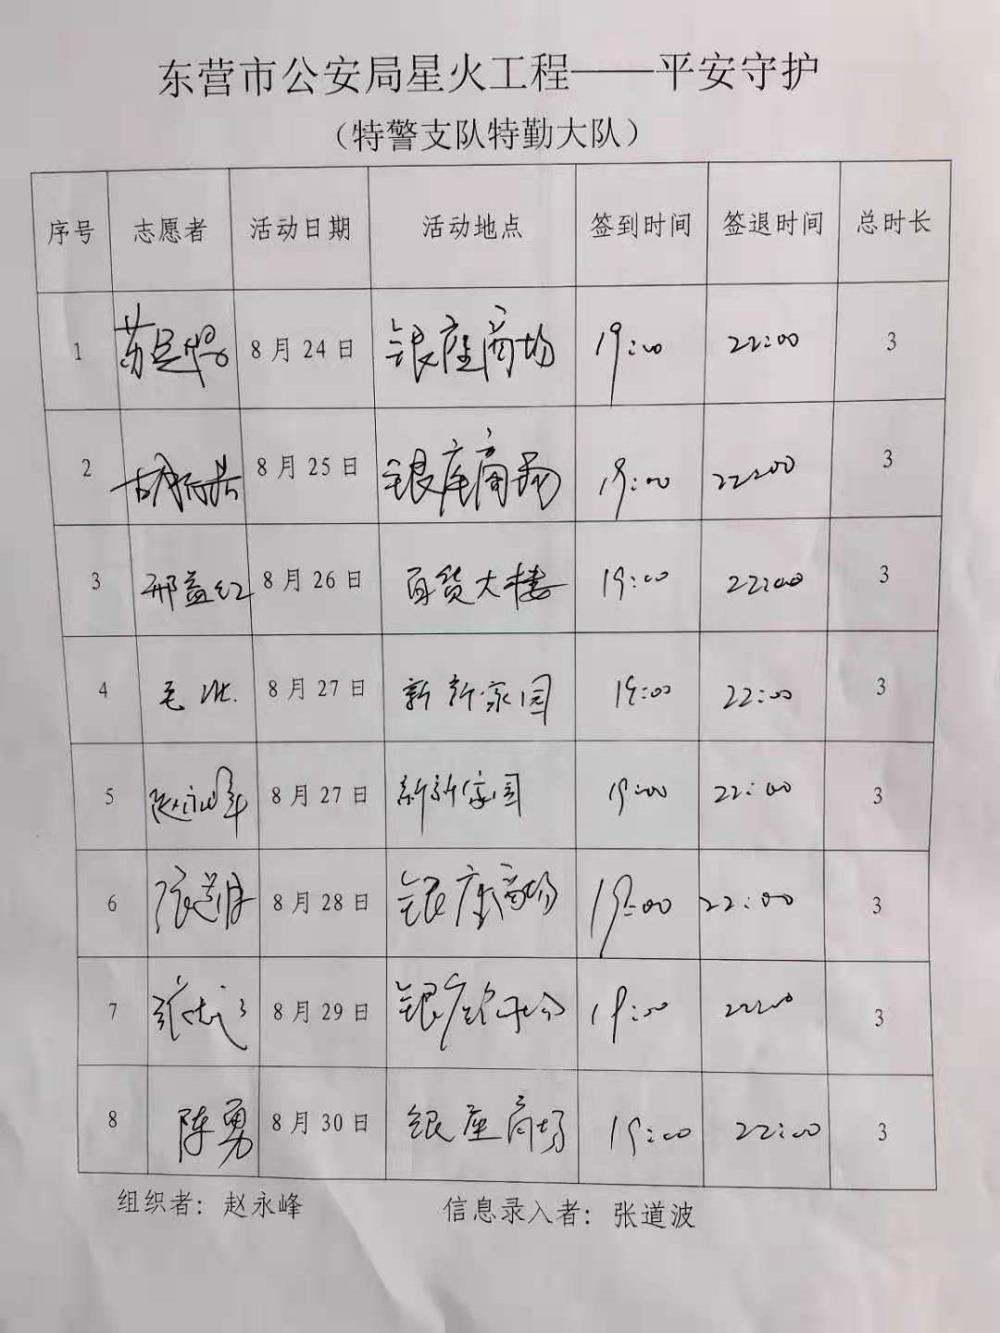 东营市公安局星火工程——平安守护
（特警支队特勤大队）
序号 志愿者 活动日期 活动地点 签到时间 签退时间 总时长
1 8月24日 银座商场 19:00 22:00 3
2 8月25日 银座商场 19:00 22:00 3
3 邢益红 8月26日 百货大楼 19:00 22:00 3
4 毛 8月27日 新新家园 19:00 22:00 3
5 赵永峰 8月27日 新新家园 19:00 22:00 3
6 张道波 8月28日 银座商场 19:00 22:00 3
7 8月29日 银座商场 19:00 22:00 3
8 陈勇 8月30日 银座商场 19:00 22:00 3
组织者：赵永峰 信息录入者：张道波